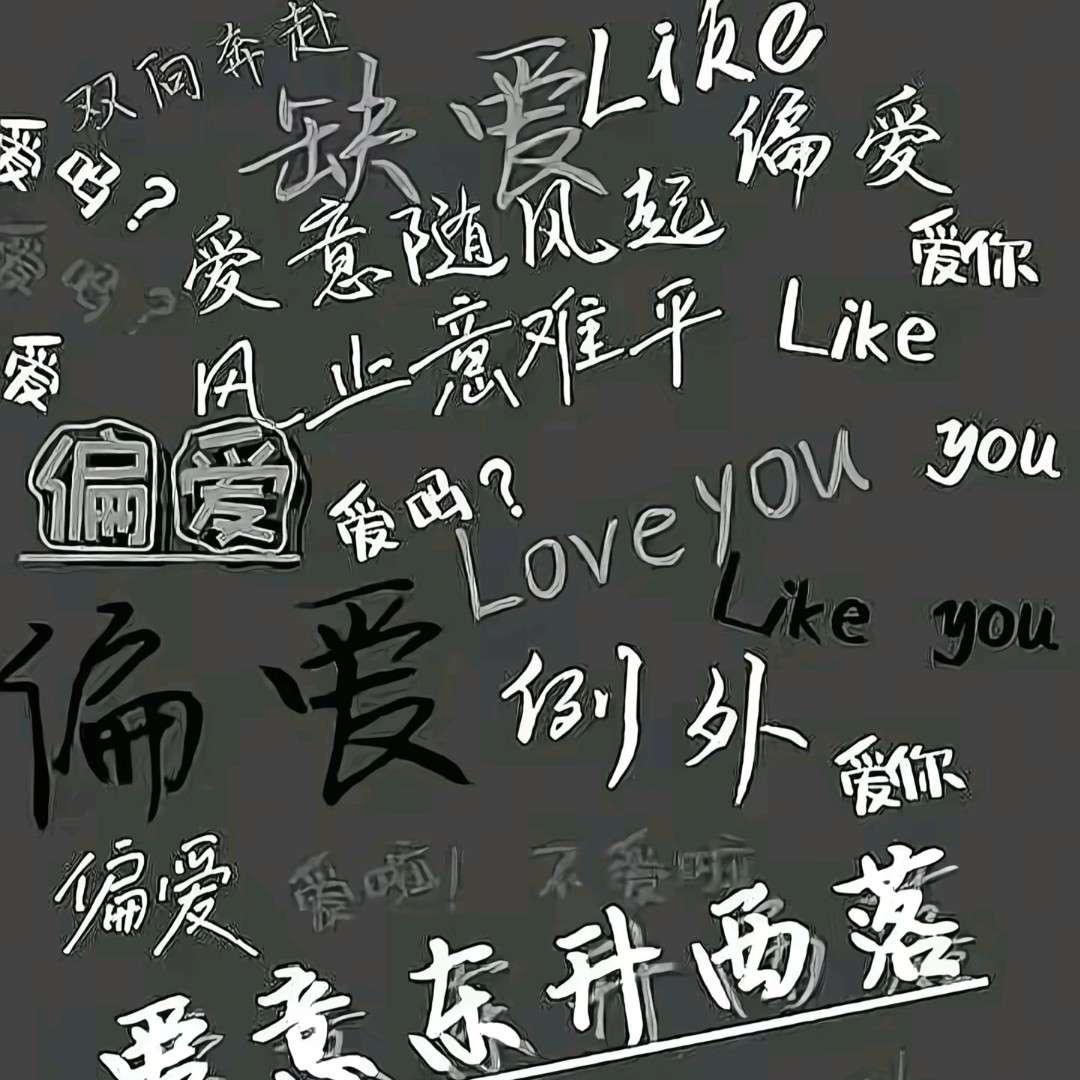 双向奔赴
Like
缺爱
偏爱
爱吗?
爱意随风起
爱你
爱吗?
风止意难平
Like
爱
偏爱
you
Love you
爱吗?
Like you
偏爱
例外
爱你
偏爱
爱啦!
不爱啦
爱意东升西落